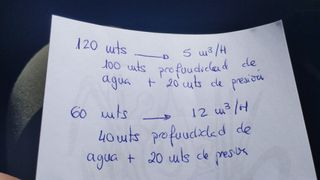 120 mts → 5 m³/H
100 mts profundidad de
agua + 20 mts de presion
60 mts → 12 m³/H
40 mts profundidad de
agua + 20 mts de presion